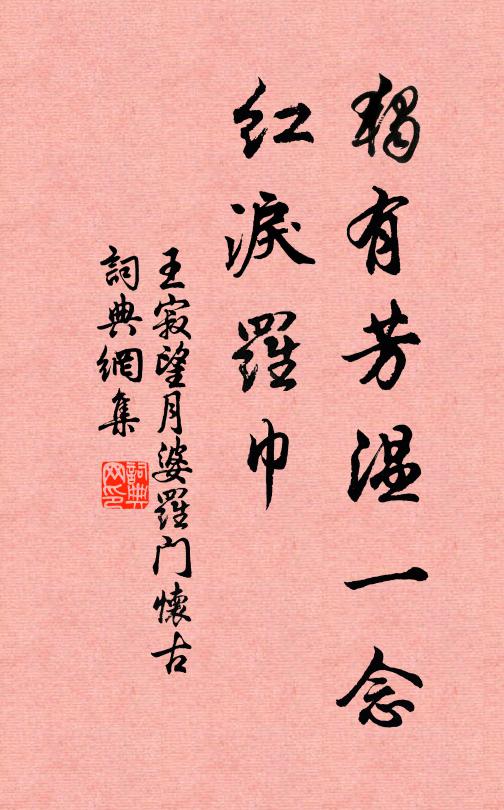 獨有芳溫一念
紅淚羅巾
王寂望月婆羅門懷古
詞典網集
詞典
网印